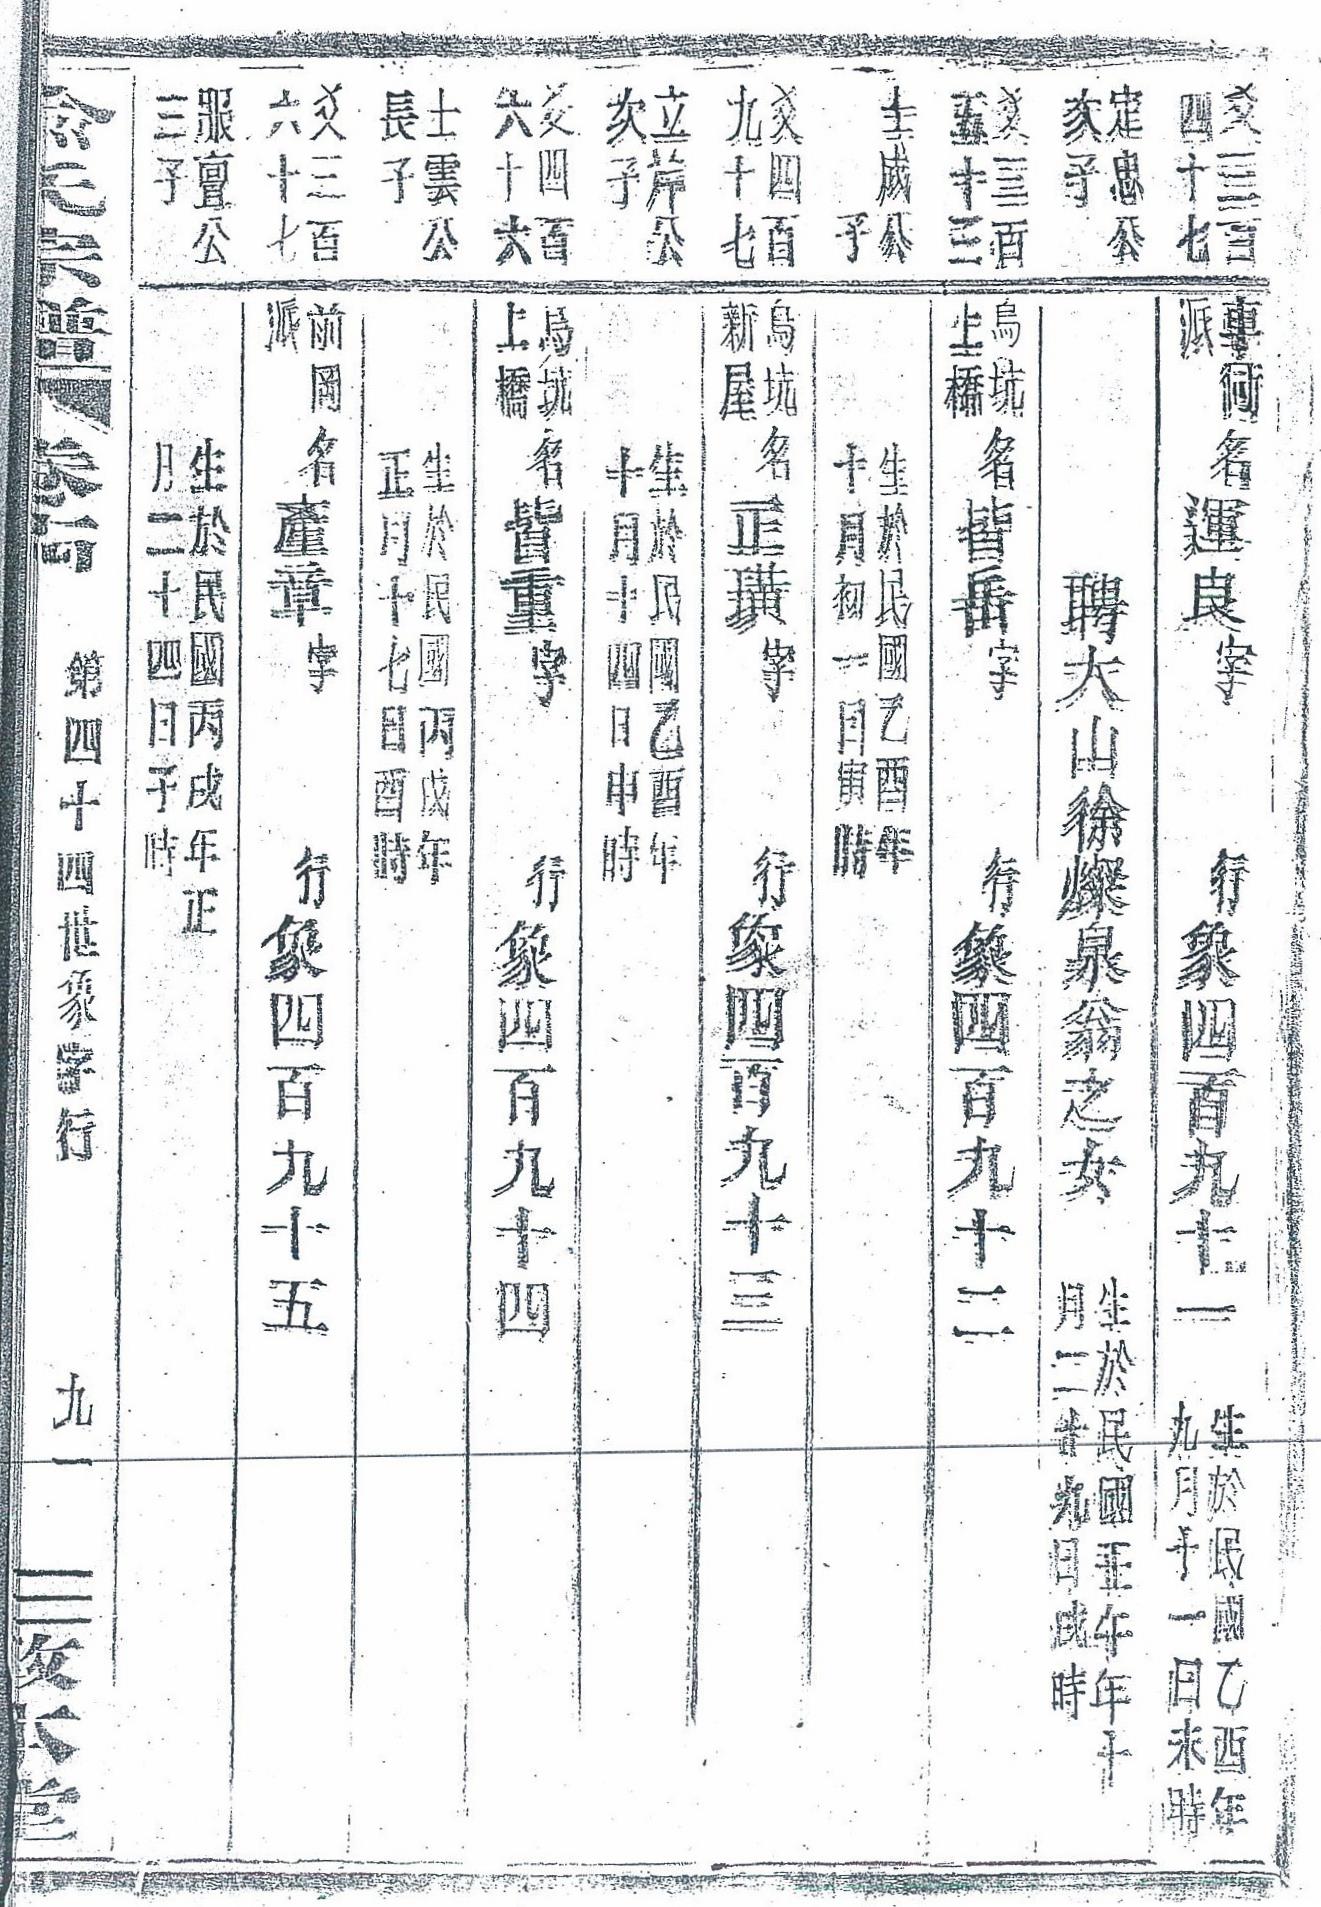 爻三百
四十七
車衕
派
名運良字
行象四百九十一
生於民國乙酉年
九月十一日未時
定忠公
次子
聘大山徐燦泉翁之女
生於民國壬午年十
月二廿九日戌時
爻三百
五十三
烏坑
上橋
名皆岳字
行象四百九十二
士成公
子
生於民國乙酉年
十月初一日寅時
爻四百
九十七
烏坑
新屋
名正璜字
行象四百九十三
立岸公
次子
生於民國乙酉年
十月十四日申時
爻四百
六十六
烏坑
上橋
名皆重字
行象四百九十四
士雲公
長子
生於民國丙戌年
正月十七日酉時
爻三百
六十七
前岡
派
名產章字
行象四百九十五
服亶公
三子
生於民國丙戌年正
月二十四日子時
第四十四世象字行
九一